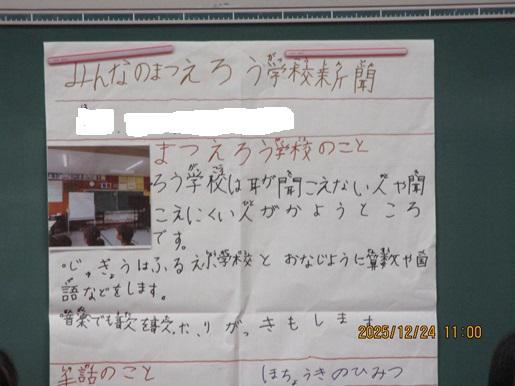 みんなのまつえろう学校新聞
まつえろう学校のこと
ろう学校は耳が聞こえない人や聞
こえにくい人がかようところ
です。
じゅぎょうはふるえ小学校と おなじように算数や国
語などをします。
音楽でも
がっきもします
手話のこと
ほちょうきのひみつ
2025/12/24 11:00